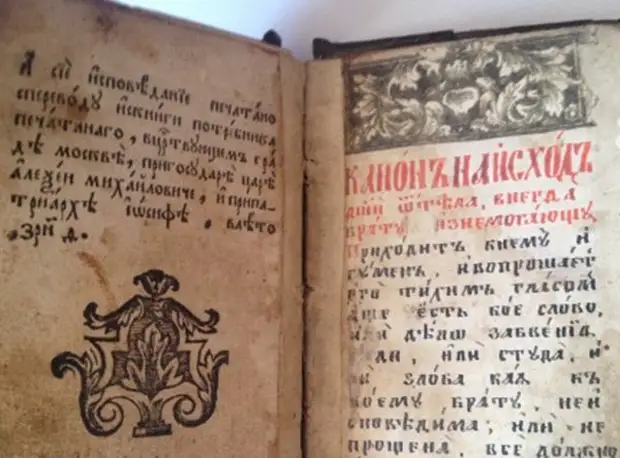 А сїѐ и҆сповѣданїе печатано
спереводу и҆скни́ги потре́бника
печа́таннаго, вца́рствующимъ гра́
дѣ москвѣ, пригосударѣ царѣ
а҆леѯе́и миха́иловиче, и҆припа-
трїа́рхѣ і҆ѡ́сифѣ, влѣто
҂зрн҃д.
КАНО́НЪ НАИ́СХО́Д
ѿтѣла, внегда
бра́ту и҆знемога́ющу
Приходитъ кнему̀ и҆
гу́менъ, и҆вопроша́етъ
его̀ ти́химъ гла́сомъ
а҆ще є҆сть коѐ сло́во,
и҆лѝ дѣ́ѧ забве́нїѧ
ра́ди, и҆лѝ студа̀, и҆
лѝ зло́ба ка́ѧ къ
ко́ему бра́ту, неи
сповѣ́дима, и҆лѝ не
проще́на, всѐ до́лжно